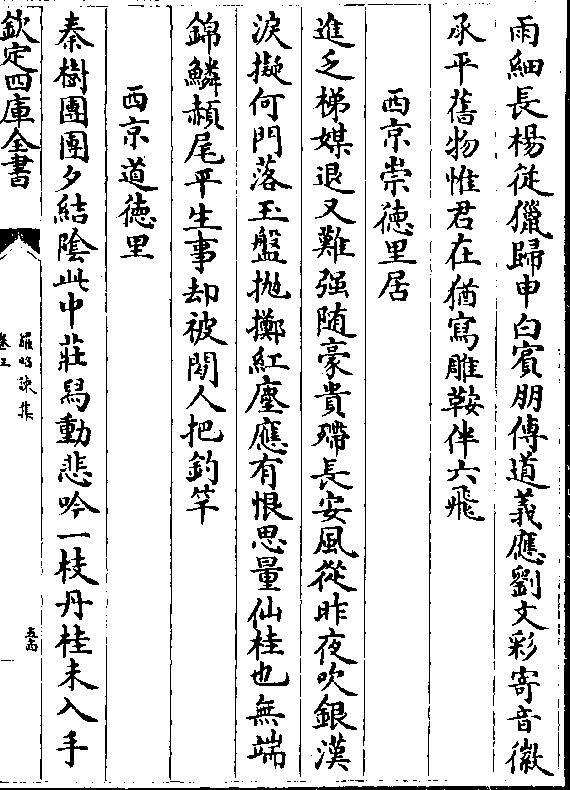 雨細長楊從獵歸申白賓朋傳道義應劉文彩寄音徽
承平舊物惟君在猶寫雕鞍伴六飛
西京崇徳里居
進乏梯媒退又難强随豪貴殢長安風從昨夜吹銀漢
淚擬何門落玉盤抛擲紅塵應有恨思量仙桂也無端
錦鱗赬尾平生事却被閒人把釣竿
西京道徳里
秦樹團團夕結陰此中莊舄動悲吟一枝丹桂未入手
欽定四庫全書
羅昭諫集
卷三